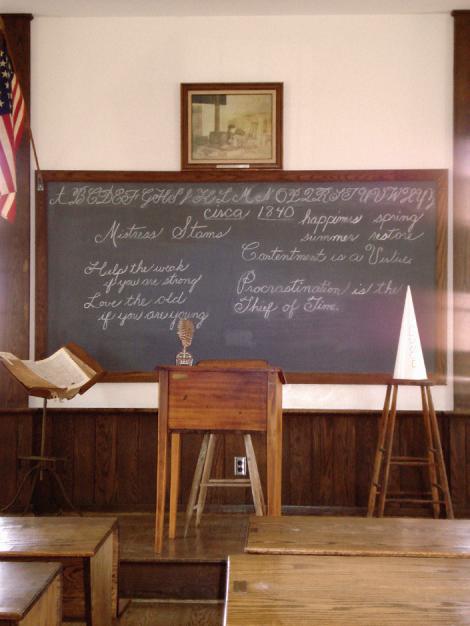 A B C D E F G H I J K L M N O P Q R S T U V W X Y Z
circa 1840
happines spring
summer restore
Mistress Stams
Help the weak
if you are strong
Love the old
if you are young
Contentment is a Virtue
Procrastination is the
Thief of Time.